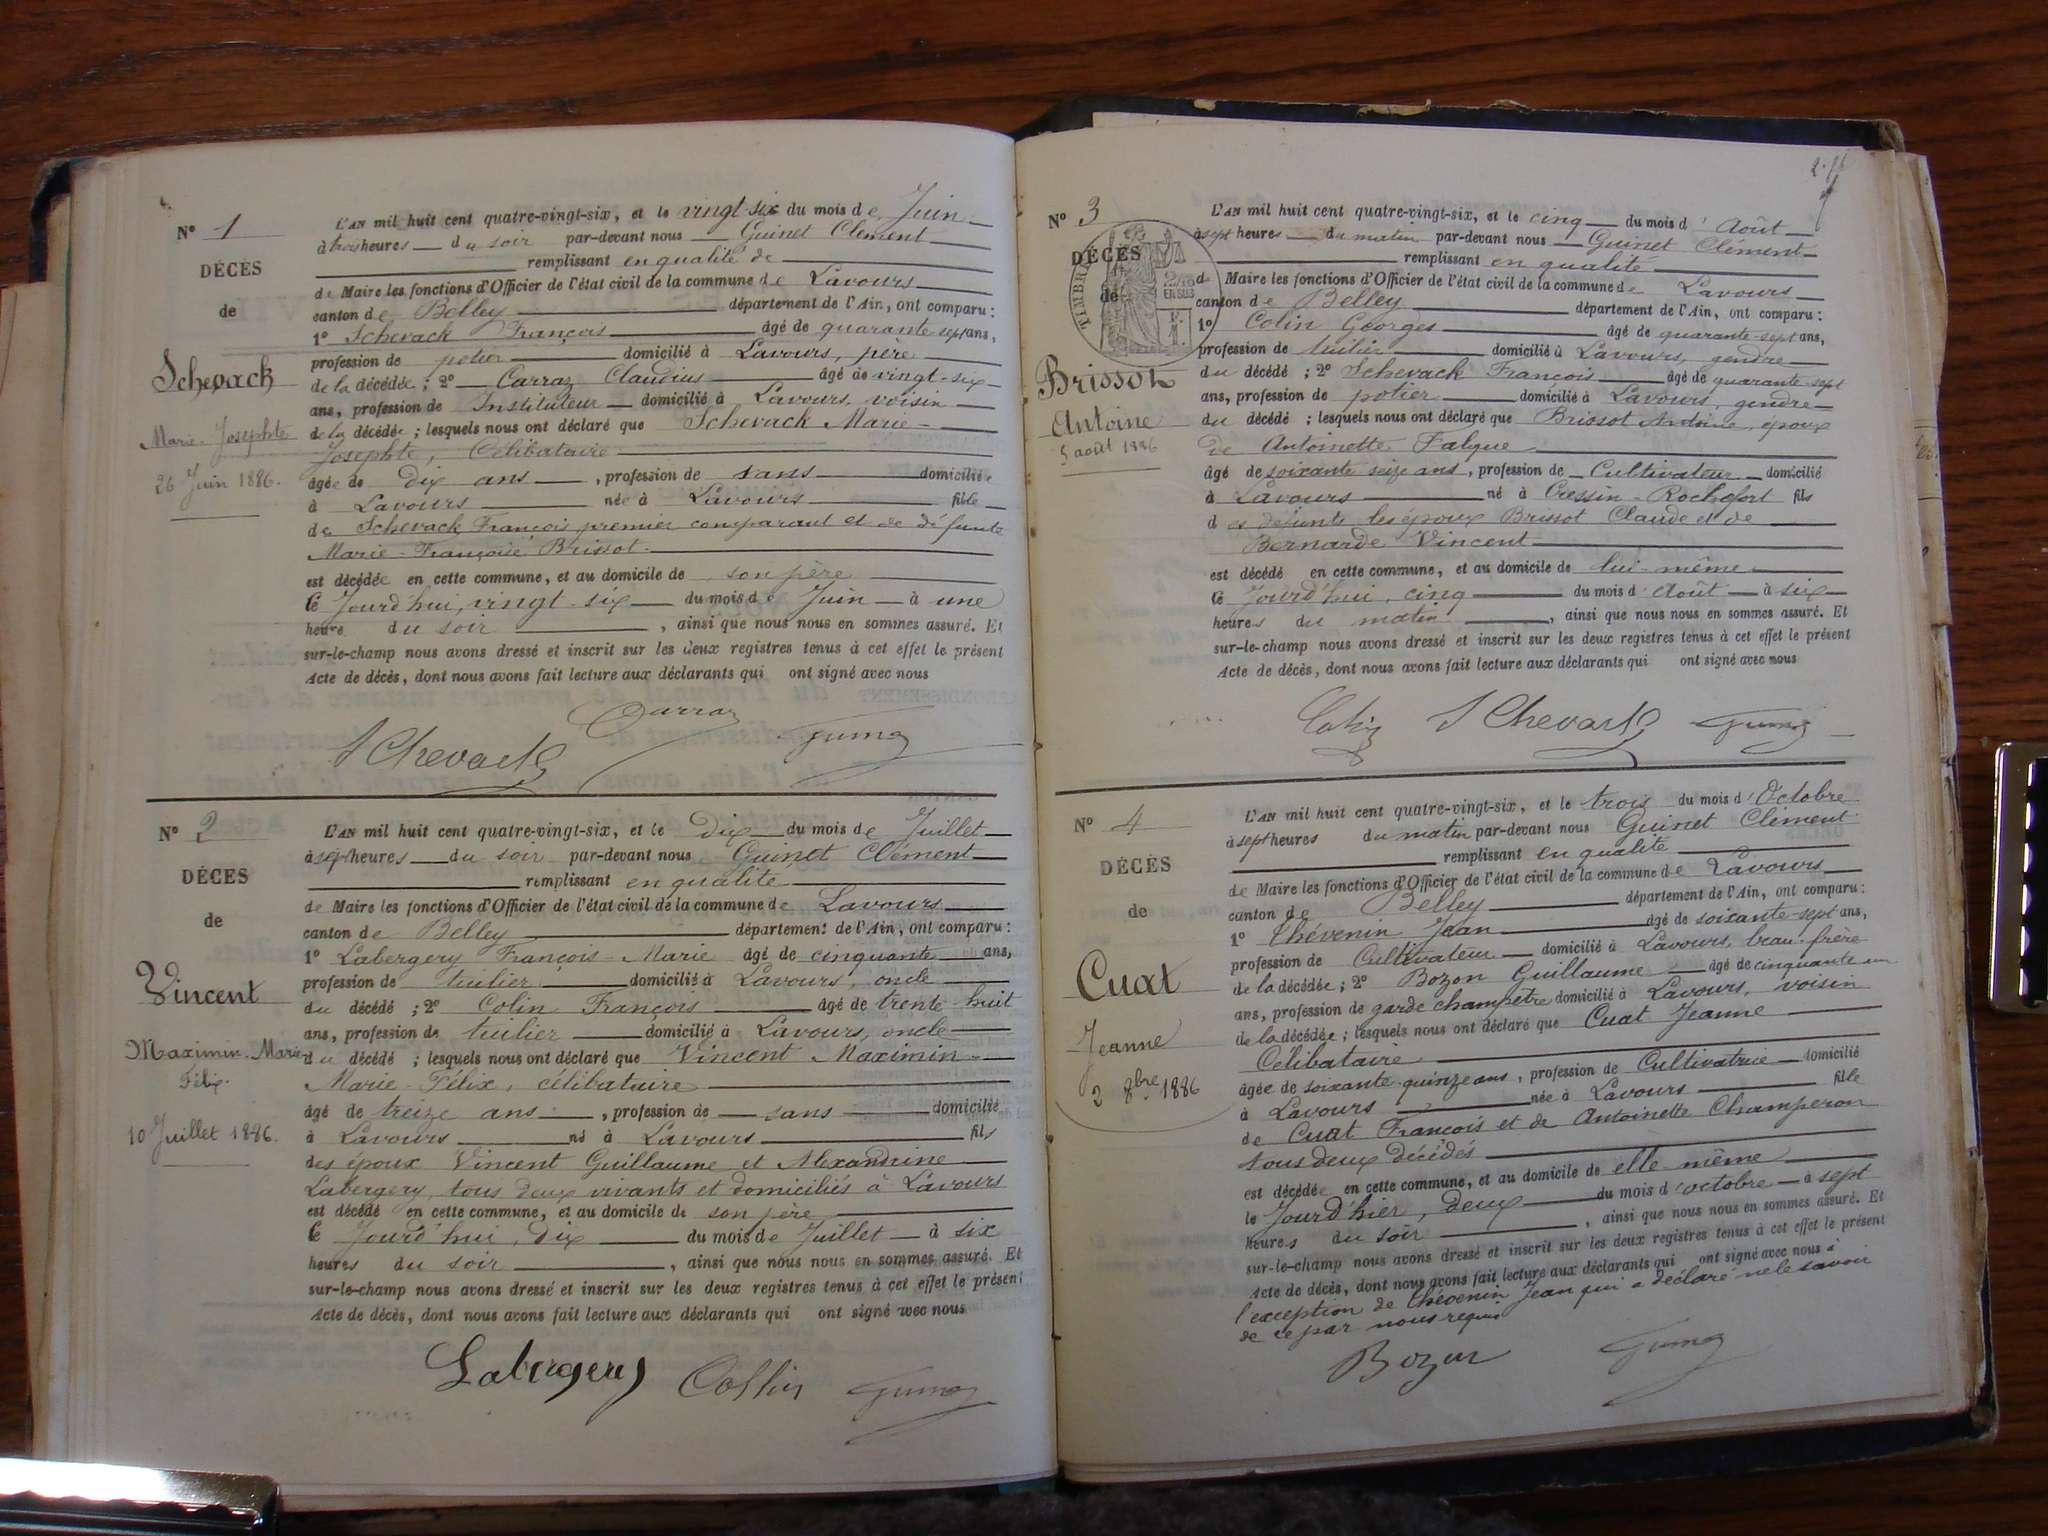 N° 1
DÉCÈS
de
Schevack
Marie-Josephte
26 Juin 1886.
L'AN mil huit cent quatre-vingt-six, et le vingt-six du mois de Juin
à trois heures du soir par-devant nous Guinet Clément
remplissant en qualité de
de Maire les fonctions d'Officier de l'état civil de la commune de Lavours
canton de Belley département de l'Ain, ont comparu :
1° Schevack François âgé de quarante-sept ans,
profession de potier domicilié à Lavours, père
de la décédée ; 2° Carraz Claudius âgé de vingt-six
ans, profession de Instituteur domicilié à Lavours, voisin
de la décédée ; lesquels nous ont déclaré que Schevack Marie-
Josephte, Célibataire
âgée de dix ans, profession de sans domiciliée
à Lavours née à Lavours fille
de Schevack François premier comparant et de défunte
Marie-Françoise Brissot.
est décédée en cette commune, et au domicile de son père
le Jourd'hui, vingt-six du mois de Juin à une
heure du soir, ainsi que nous nous en sommes assuré. Et
sur-le-champ nous avons dressé et inscrit sur les deux registres tenus à cet effet le présent
Acte de décès, dont nous avons fait lecture aux déclarants qui ont signé avec nous
Carraz
SChevack
N° 2
DÉCÈS
de
Vincent
Maximin-Marie
Félix.
10 Juillet 1886.
L'AN mil huit cent quatre-vingt-six, et le Dix du mois de Juillet
à sept heures du soir par-devant nous Guinet Clément
remplissant en qualité
de Maire les fonctions d'Officier de l'état civil de la commune de Lavours
canton de Belley département de l'Ain, ont comparu :
1° Labergery François-Marie âgé de cinquante ans,
profession de tuilier domicilié à Lavours, oncle
du décédé ; 2° Colin François âgé de trente-huit
ans, profession de tuilier domicilié à Lavours, oncle
du décédé ; lesquels nous ont déclaré que Vincent Maximin-
Marie-Félix, célibataire
âgé de treize ans, profession de sans domicilié
à Lavours né à Lavours fils
des époux Vincent Guillaume et Alexandrine
Labergery, tous deux vivants et domiciliés à Lavours
est décédé en cette commune, et au domicile de son père
le Jourd'hui, Dix du mois de Juillet à six
heures du soir, ainsi que nous nous en sommes assuré. Et
sur-le-champ nous avons dressé et inscrit sur les deux registres tenus à cet effet le présent
Acte de décès, dont nous avons fait lecture aux déclarants qui ont signé avec nous
Labergery Collin
N° 3
DÉCÈS
de
TIMBRE
Brissot
Antoine
5 août 1886
L'AN mil huit cent quatre-vingt-six, et le cinq du mois d'Août
à sept heures du matin par-devant nous Guinet Clément
remplissant en qualité
de Maire les fonctions d'Officier de l'état civil de la commune de Lavours
canton de Belley département de l'Ain, ont comparu :
1° Colin Georges âgé de quarante-sept ans,
profession de tuilier domicilié à Lavours, gendre
du décédé ; 2° Schevack François âgé de quarante-sept
ans, profession de potier domicilié à Lavours, gendre
du décédé ; lesquels nous ont déclaré que Brissot Antoine, époux
de Antoinette Falque
âgé de soixante seize ans, profession de Cultivateur domicilié
à Lavours né à Cressin-Rochefort fils
des défunts les époux Brissot Claude et de
Bernarde Vincent
est décédé en cette commune, et au domicile de lui-même
le Jourd'hui, cinq du mois d'Août à six
heures du matin, ainsi que nous nous en sommes assuré. Et
sur-le-champ nous avons dressé et inscrit sur les deux registres tenus à cet effet le présent
Acte de décès, dont nous avons fait lecture aux déclarants qui ont signé avec nous
SChevack
N° 4
DÉCÈS
de
Cuat
Jeanne
2 8bre 1886
L'AN mil huit cent quatre-vingt-six, et le trois du mois d'Octobre
à sept heures du matin par-devant nous Guinet Clément
remplissant en qualité
de Maire les fonctions d'Officier de l'état civil de la commune de Lavours
canton de Belley département de l'Ain, ont comparu :
1° Thévenin Jean âgé de soixante-sept ans,
profession de Cultivateur domicilié à Lavours, beau-frère
de la décédée ; 2° Bozon Guillaume âgé de cinquante un
ans, profession de garde champêtre domicilié à Lavours, voisin
de la décédée ; lesquels nous ont déclaré que Cuat Jeanne
Célibataire
âgée de soixante-quinze ans, profession de Cultivatrice domicilié
à Lavours née à Lavours fille
de Cuat François et de Antoinette Champeron
tous deux décédés
est décédée en cette commune, et au domicile de elle-même
le Jourd'hier, deux du mois d'octobre à sept
heures du soir, ainsi que nous nous en sommes assuré. Et
sur-le-champ nous avons dressé et inscrit sur les deux registres tenus à cet effet le présent
Acte de décès, dont nous avons fait lecture aux déclarants qui ont signé avec nous à
l'exception de Thévenin Jean qui a déclaré ne le savoir
de ce par nous requis
Bozon